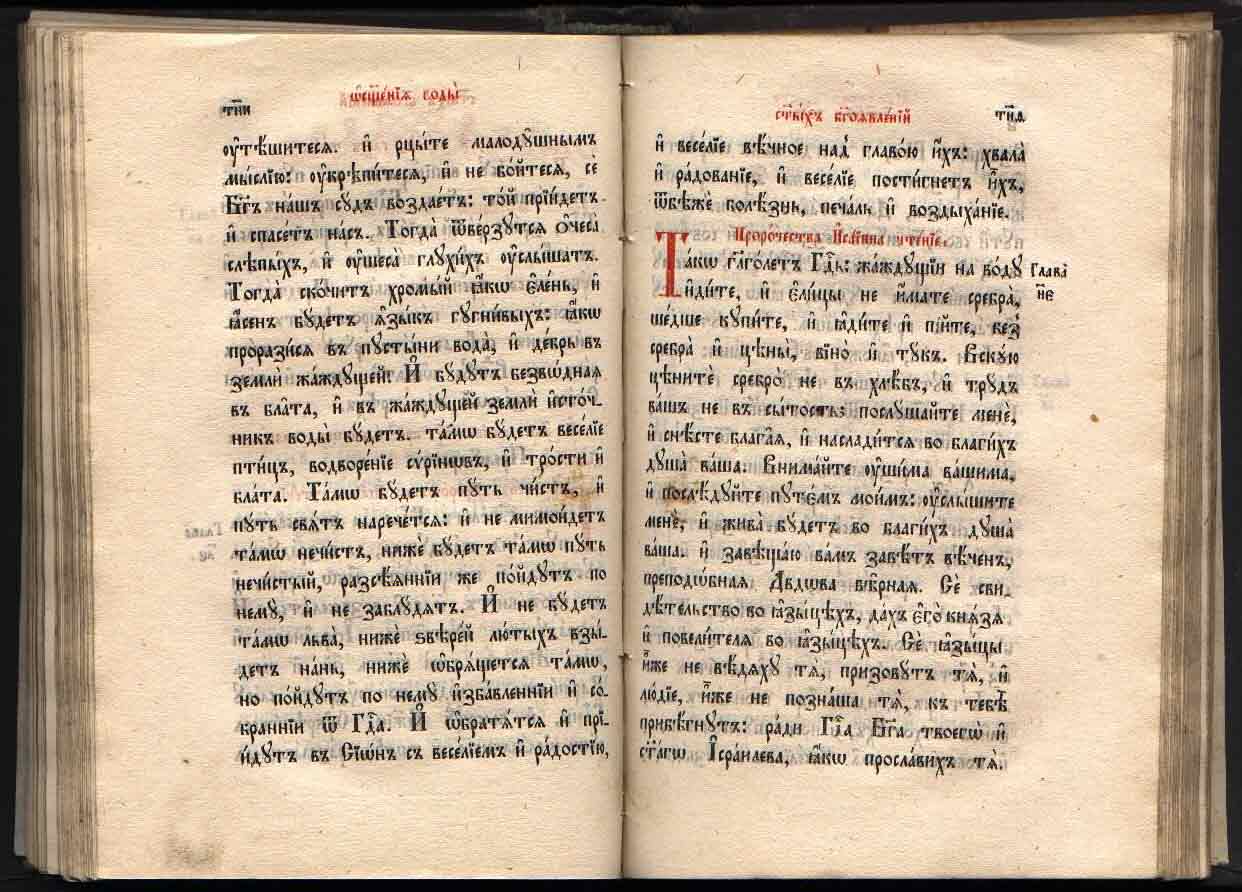 тн҃и
ѡ҆сщ҃е́нїѧ воды̀
ѹ҆тѣ́шитесѧ. и҆ рцы́те малодꙋ́шнымъ
мы́слїю: ѹ҆крѣпи́тесѧ, и҆ не бо́йтесѧ, сѐ
бг҃ъ на́шъ сꙋ́дъ воздае́тъ: то́й прїи́детъ
и҆ спасе́тъ на́съ. Тогда̀ ѿве́рзꙋтсѧ ѻ҆чеса̀
слѣпы́хъ, и҆ ѹ҆шеса̀ глꙋхи́хъ ѹ҆слы́шатъ.
Тогда̀ ско́читъ хромы́й ꙗ҆́кѡ є҆ле́нь, и҆
ꙗ҆́сенъ бꙋ́детъ ѧ҆зы́къ гꙋгни́выхъ: ꙗ҆́кѡ
проразисѧ въ пꙋсты́ни вода̀, и҆ де́брь въ
землѝ жа́ждꙋщей. И҆ бꙋ́дꙋтъ безвѡ́днаѧ
въ бла́та, и҆ въ жа́ждꙋщей землѝ и҆сто́ч-
никъ воды̀ бꙋ́детъ. та́мѡ бꙋ́детъ весе́лїе
пти́цъ, водворе́нїе сѵри́нѡвъ, и҆ тро́сти и҆
бла́та. Та́мѡ бꙋ́детъ пꙋ́ть чи́стъ, и҆
пꙋ́ть свѧ́тъ нарече́тсѧ: и҆ не мимои́детъ
та́мѡ нечи́стъ, нижѐ бꙋ́детъ та́мѡ пꙋ́ть
нечи́стый, разсѣ́ѧннїи же по́йдꙋтъ по
немꙋ̀, и҆ не заблꙋ́дѧтъ. И҆ не бꙋ́детъ
та́мѡ льва̀, нижѐ ѕвѣре́й лю́тыхъ взы́-
детъ на́нь, нижѐ ѡ҆брѧ́щетсѧ та́мѡ,
но по́йдꙋтъ по немꙋ̀ и҆зба́вленнїи и҆ со́-
браннїи ѿ гдⷭ҇а. И҆ ѡ҆братѧ́тсѧ и҆ прї-
и́дꙋтъ въ сїѡ́нъ съ весе́лїемъ и҆ ра́достїю,
ст҃ы́хъ бг҃оѧвле́нїй
тн҃ѳ.
и҆ весе́лїе вѣ́чное над̾ главо́ю и҆́хъ: хвала̀
и҆ ра́дованїе, и҆ весе́лїе пости́гнетъ и҆̀хъ,
ѿбѣжѐ болѣ́знь, печа́ль и҆ воздыха́нїе.
Проро́чества И҆са́їина чте́нїе.
Та́кѡ гл҃го́летъ гдⷭ҇ь: жа́ждꙋщїи на во́дꙋ
глава̀
и҆ди́те, и҆ є҆ли́цы не и҆́мате сребра̀,
н҃е
ше́дше кꙋпи́те, и҆ ꙗ҆ди́те и҆ пі́йте, без̾
сребра̀ и҆ цѣны̀, вїно̀ и҆ тꙋ́къ. Вскꙋ́ю
цѣ́ните сребро̀ не въ хлѣ́бъ, и҆ трꙋ́дъ
ва́шъ не въ сы́тость: послꙋ́шайте менѐ,
и҆ снѣ́сте благаѧ, и҆ наслади́тсѧ во благи́хъ
дꙋша̀ ва́ша. Внима́йте ѹ҆ши́ма ва́шима,
и҆ послѣ́дꙋйте пꙋте́мъ мои́мъ: ѹ҆слы́шите
менѐ, и҆ жива̀ бꙋ́детъ во благи́хъ дꙋша̀
ва́ша. и҆ завѣща́ю ва́мъ завѣ́тъ вѣ́ченъ,
преподѡ́бнаѧ дв҃дѡва вѣ̑рнаѧ. Сѐ сви-
дѣ́тельство во ꙗ҆зы́цѣхъ, да́хъ є҆го̀ кнѧ́зѧ
и҆ повели́телѧ во ꙗ҆зы́цѣхъ. Сѐ ꙗ҆зы́цы
и҆̀же не вѣ́дѧхꙋ тѧ̀, призовꙋ́тъ тѧ̀, и҆
лю́дїе, и҆̀же не позна́ша тѧ̀, къ тебѣ̀
прибѣ́гнꙋтъ: ра́ди гдⷭ҇а бг҃а твоегѡ̀ и҆
ст҃а́гѡ І҆сра́илева, ꙗ҆́кѡ просла́вихъ тѧ̀.